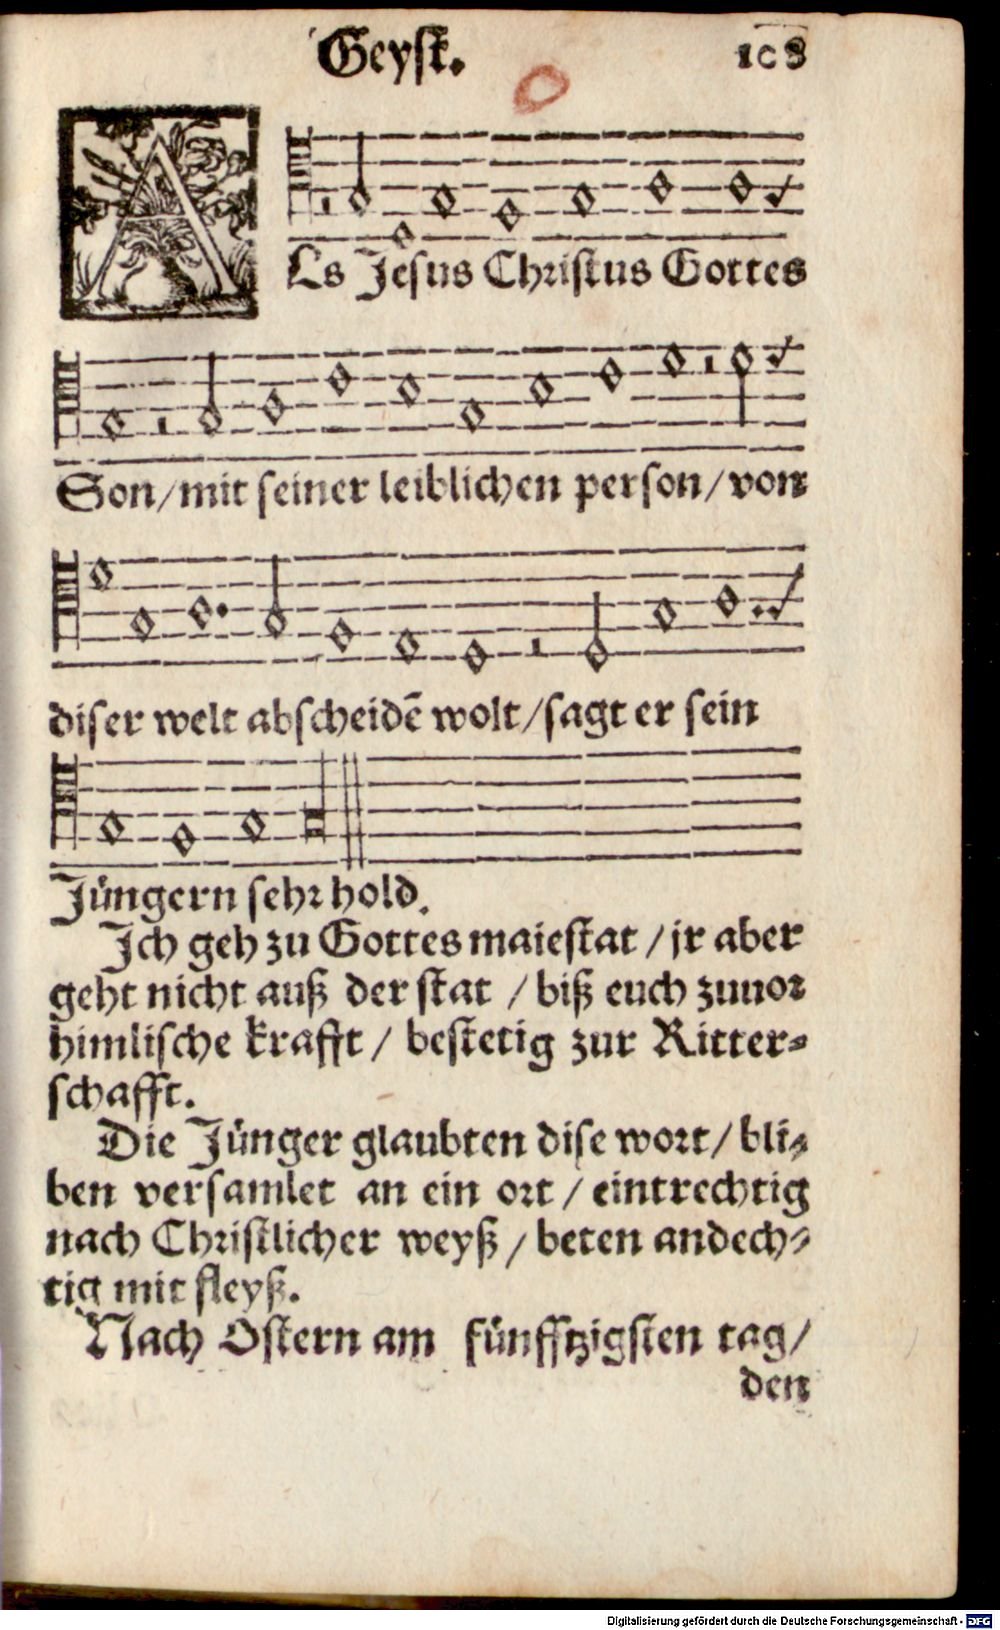 Geyst.
108
ALs Jesus Christus Gottes
Son/mit seiner leiblichen person/von
diser welt abscheidē wolt/sagt er sein
Jüngern sehr hold.
Ich geh zu Gottes maiestat / jr aber
geht nicht auß der stat / biß euch zuuor
himlische krafft / bestetig zur Ritter=
schafft.
Die Jünger glaubten dise wort / bli=
ben versamlet an ein ort / eintrechtig
nach Christlicher weyß / beten andech=
tig mit fleyß.
Nach Ostern am fünfftzigsten tag /
den
Digitalisierung gefördert durch die Deutsche Forschungsgemeinschaft - DFG